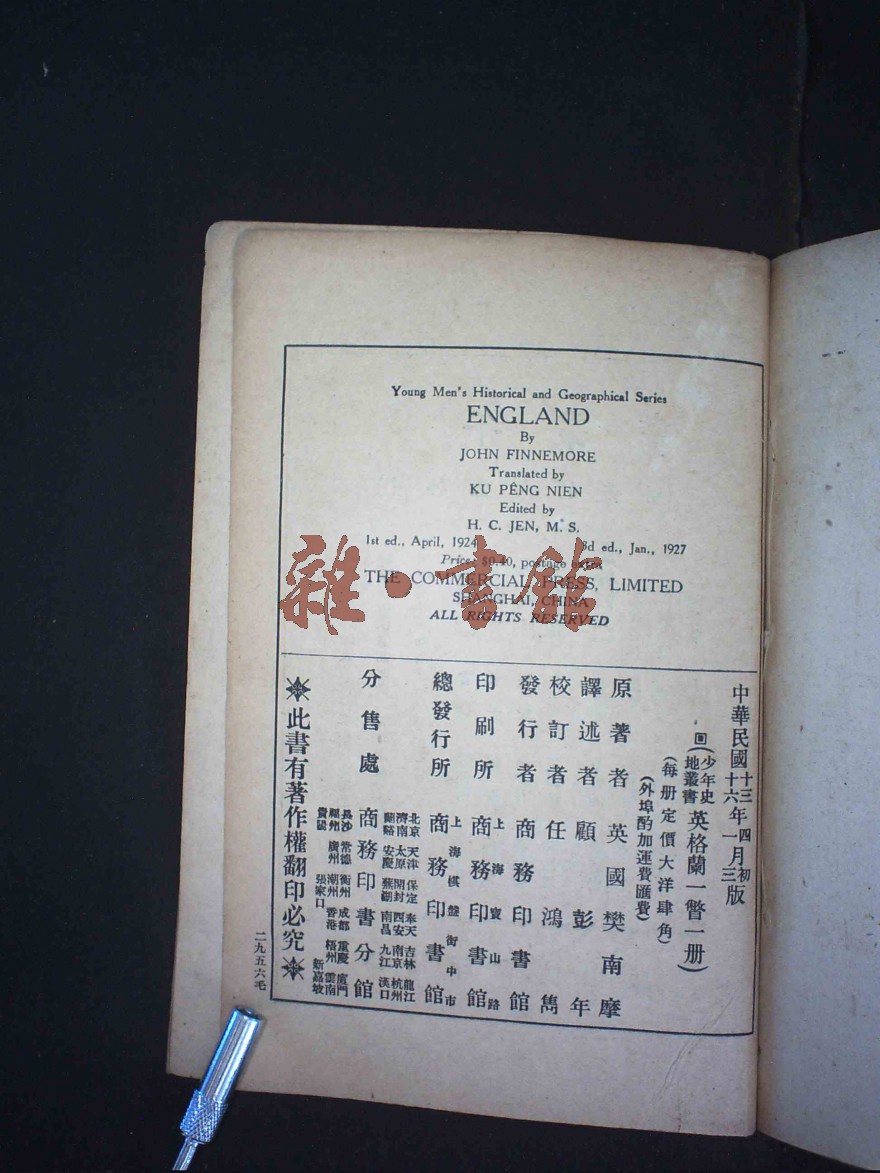 Young Men's Historical and Geographical Series
ENGLAND
By
JOHN FINNEMORE
Translated by
KU PÊNG NIEN
Edited by
H. C. JEN, M. S.
1st ed., April, 1924 3d ed., Jan., 1927
Price: $0.40, postage extra
THE COMMERCIAL PRESS, LIMITED
SHANGHAI, CHINA
ALL RIGHTS RESERVED
雜·書館
中華民國十三年四月初版
十六年一月三版
(少年史地叢書)英格蘭一瞥一册)
(每册定價大洋肆角)
(外埠酌加運費匯費)
原著者 英國樊南摩
譯述者 顧彭年
校訂者 任鴻雋
發行者 商務印書館
印刷所 上海寶山路 商務印書館
總發行所 上海棋盤街中市 商務印書館
分售處 商務印書分館
北京 天津 保定 奉天 吉林 龍江
濟南 太原 開封 西安 南京 杭州
蘭谿 安慶 蕪湖 南昌 九江 漢口
長沙 常德 衡州 成都 重慶 廈門
福州 廣州 潮州 香港 梧州 雲南
貴陽 張家口 新嘉坡
此書有著作權翻印必究
二九五六毛